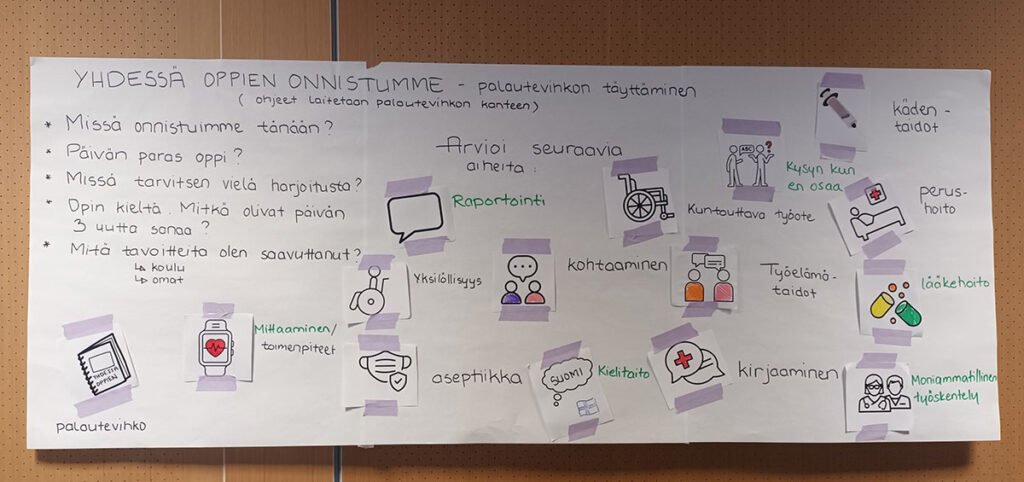 YHDESSÄ OPPIEN ONNISTUMME - palautevihkon täyttäminen
( ohjeet laitetaan palautevihkon kanteen)
* Missä onnistuimme tänään?
* Päivän paras oppi?
* Missä tarvitsen vielä harjoitusta?
* Opin kieltä. Mitkä olivat päivän
3 uutta sanaa?
* Mitä tavoitteita olen saavuttanut?
↳ koulu
↳ omat
YHDESSÄ
OPPIEN
palautevihko
Mittaaminen/
toimenpiteet
Arvioi seuraavia
aiheita:
Raportointi
Yksilöllisyys
kohtaaminen
aseptiikka
SUOMI
Kielitaito
ABC
?
Kysyn kun
en osaa
Kuntouttava työote
Työelämä-
taidot
kirjaaminen
käden-
taidot
perus-
hoito
lääkehoito
Moniammatillinen
työskentely